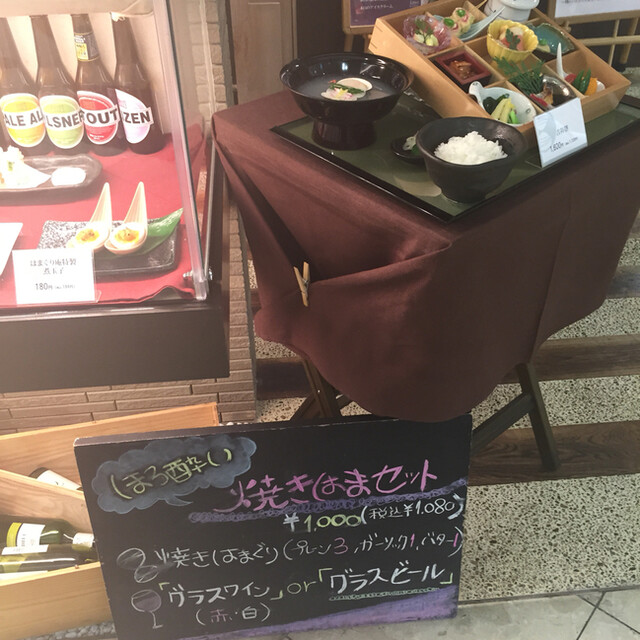 ALE AL
LSNER
OUT
ZEN
はまぐり庵特製
煮玉子
180円
1,800円
ほろ酔い
焼きはまセット
¥1,000(税込¥1,080)
焼きはまぐり(プレーン3,ガーリック1,バター1)
「グラスワイン」or「グラスビール」
(赤・白)